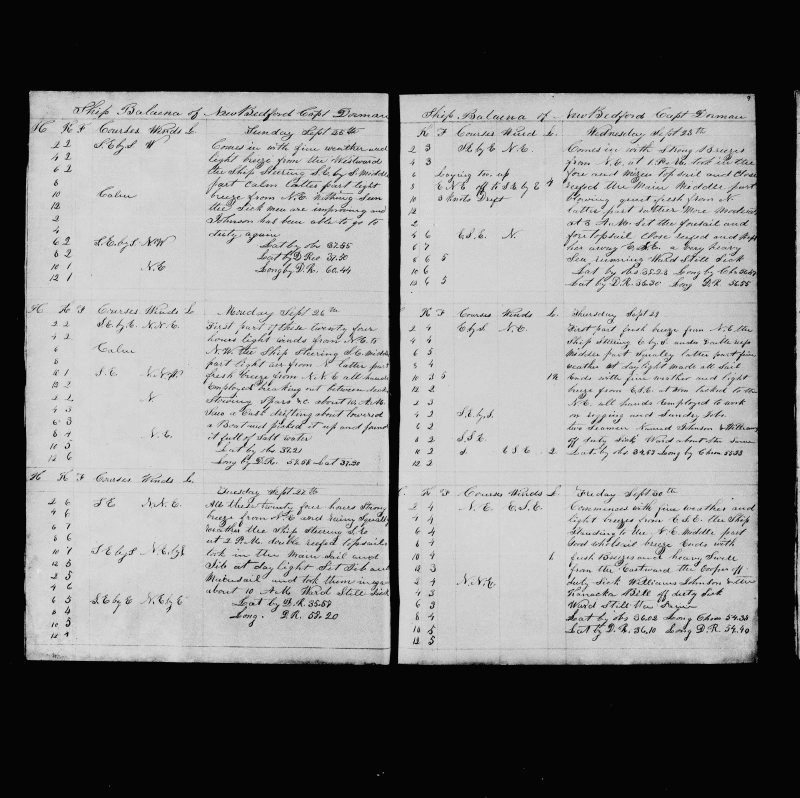 Ship Balaena of New Bedford Capt Dorman
H K F Courses Winds L. Sunday Sept 25th
2 2 S.E by S W Comes in with fine weather and
4 2 light breeze from the Westward
6 2 the Ship Steering S.E. by S. Middle
8 part Calm Latter part light
10 Calm breeze from N.E. nothing Seen
12 the Sick men are improving and
2 Johnson has been able to go to
4 duty again
6 2 S.E. by S N.W Lat by obs
8 2 Lat by D Rec
10 1 N.E Long by D.R. 60.44
12 1
H K F Courses Winds L. Monday Sept 26th
2 2 S.E by E N.N.E. First part of these twenty four
4 2 hours light winds from N.E. to
6 N.W. the Ship Steering S.E. Middle
8 Calm part light air from N latter part
10 1 S.E N.N.W fresh breeze from N.N.E all hands
12 2 employed breaking out between decks
2 N Stowing Spars &c about 10 A.M.
4 3 Saw a Cask drifting about lowered
6 3 a Boat and picked it up and found
8 4 N.E. it full of Salt water
10 5 Lat by obs 37.21
12 6 Long by D.R. Lat
H K F Courses Winds L.
Tuesday Sept
2 6 S.E N.N.E. All these twenty four hours Strong
4 6 breeze from N.E and rainy Squally
6 7 weather the Ship Steering S.E
8 6 at 2 P.M. double reefed topsails
10 7 S.E by S N.E by N took in the Main Sail and
12 5 Jib at day light Set Jib and
2 5 Mainsail and took them in again
4 6 about 10 A.M. Ward Still Sick
6 5 S.E by E N.E by E Lat by D.R.
8 4 Long. D.R.
10 3
12 4
Ship Balaena of New Bedford Capt Dorman
K F Courses Wind L. Wednesday Sept 28th
2 3 S.E by E N.E. Comes in with Strong Breezes
4 3 from N.E. at 1 P.M. took in the
6 Laying too up fore and mizen top sail and Close
8 E N E off to S.E by E reefed the Main Middle part
10 3 knots Drift Blowing from N
12 latter part rather More Moderate
2 at 3 A.M. Set the foresail and
4 6 E.S.E. N. fore topsail Close reefed and kept
6 7 her away E.S.E. a very heavy
8 6 5 Sea running Ward Still Sick
10 6 Lat by obs Long by Chro
12 6 5 Lat by D.R. Long D.R.
K F Courses Winds L. Thursday Sept 29
2 4 E by S N.E. First part fresh breeze from N.E. the
4 4 Ship Steering E by S. under double reefs
6 5 Middle part Squally latter part fine
8 4 weather at daylight made all Sail
10 3 5 Ends with fine weather and light
12 2 breeze from E.S.E. at tacked to the
2 2 N.E. all hands employed to work
4 2 S.E. by S. on rigging and Sundry Jobs
6 2 two Seamen Named Johnson & Williams
8 2 S.S.E. off duty Sick Ward about the Same
10 2 S E S E 2 Lat by obs Long by Chron
12 2
K F Courses Winds L. Friday Sept 30th
2 4 N.E. E.S.E. Commences with fine weather and
4 4 light breezes from E.S.E. the Ship
6 4 Standing to the N.E. Middle part
8 4 breeze Ends with
10 4 1 fresh Breezes and heavy Swell
12 3 from the Eastward the Cooper off
2 4 N.N.E. duty Sick Williams Johnson & the
4 3 Kanacka Bill off duty Sick
6 3 Ward Still the Same
8 4 Lat by obs 36.02 Long Chron 54.35
10 5 Lat by D.R. 36.10 Long D.R. 54.40
12 5